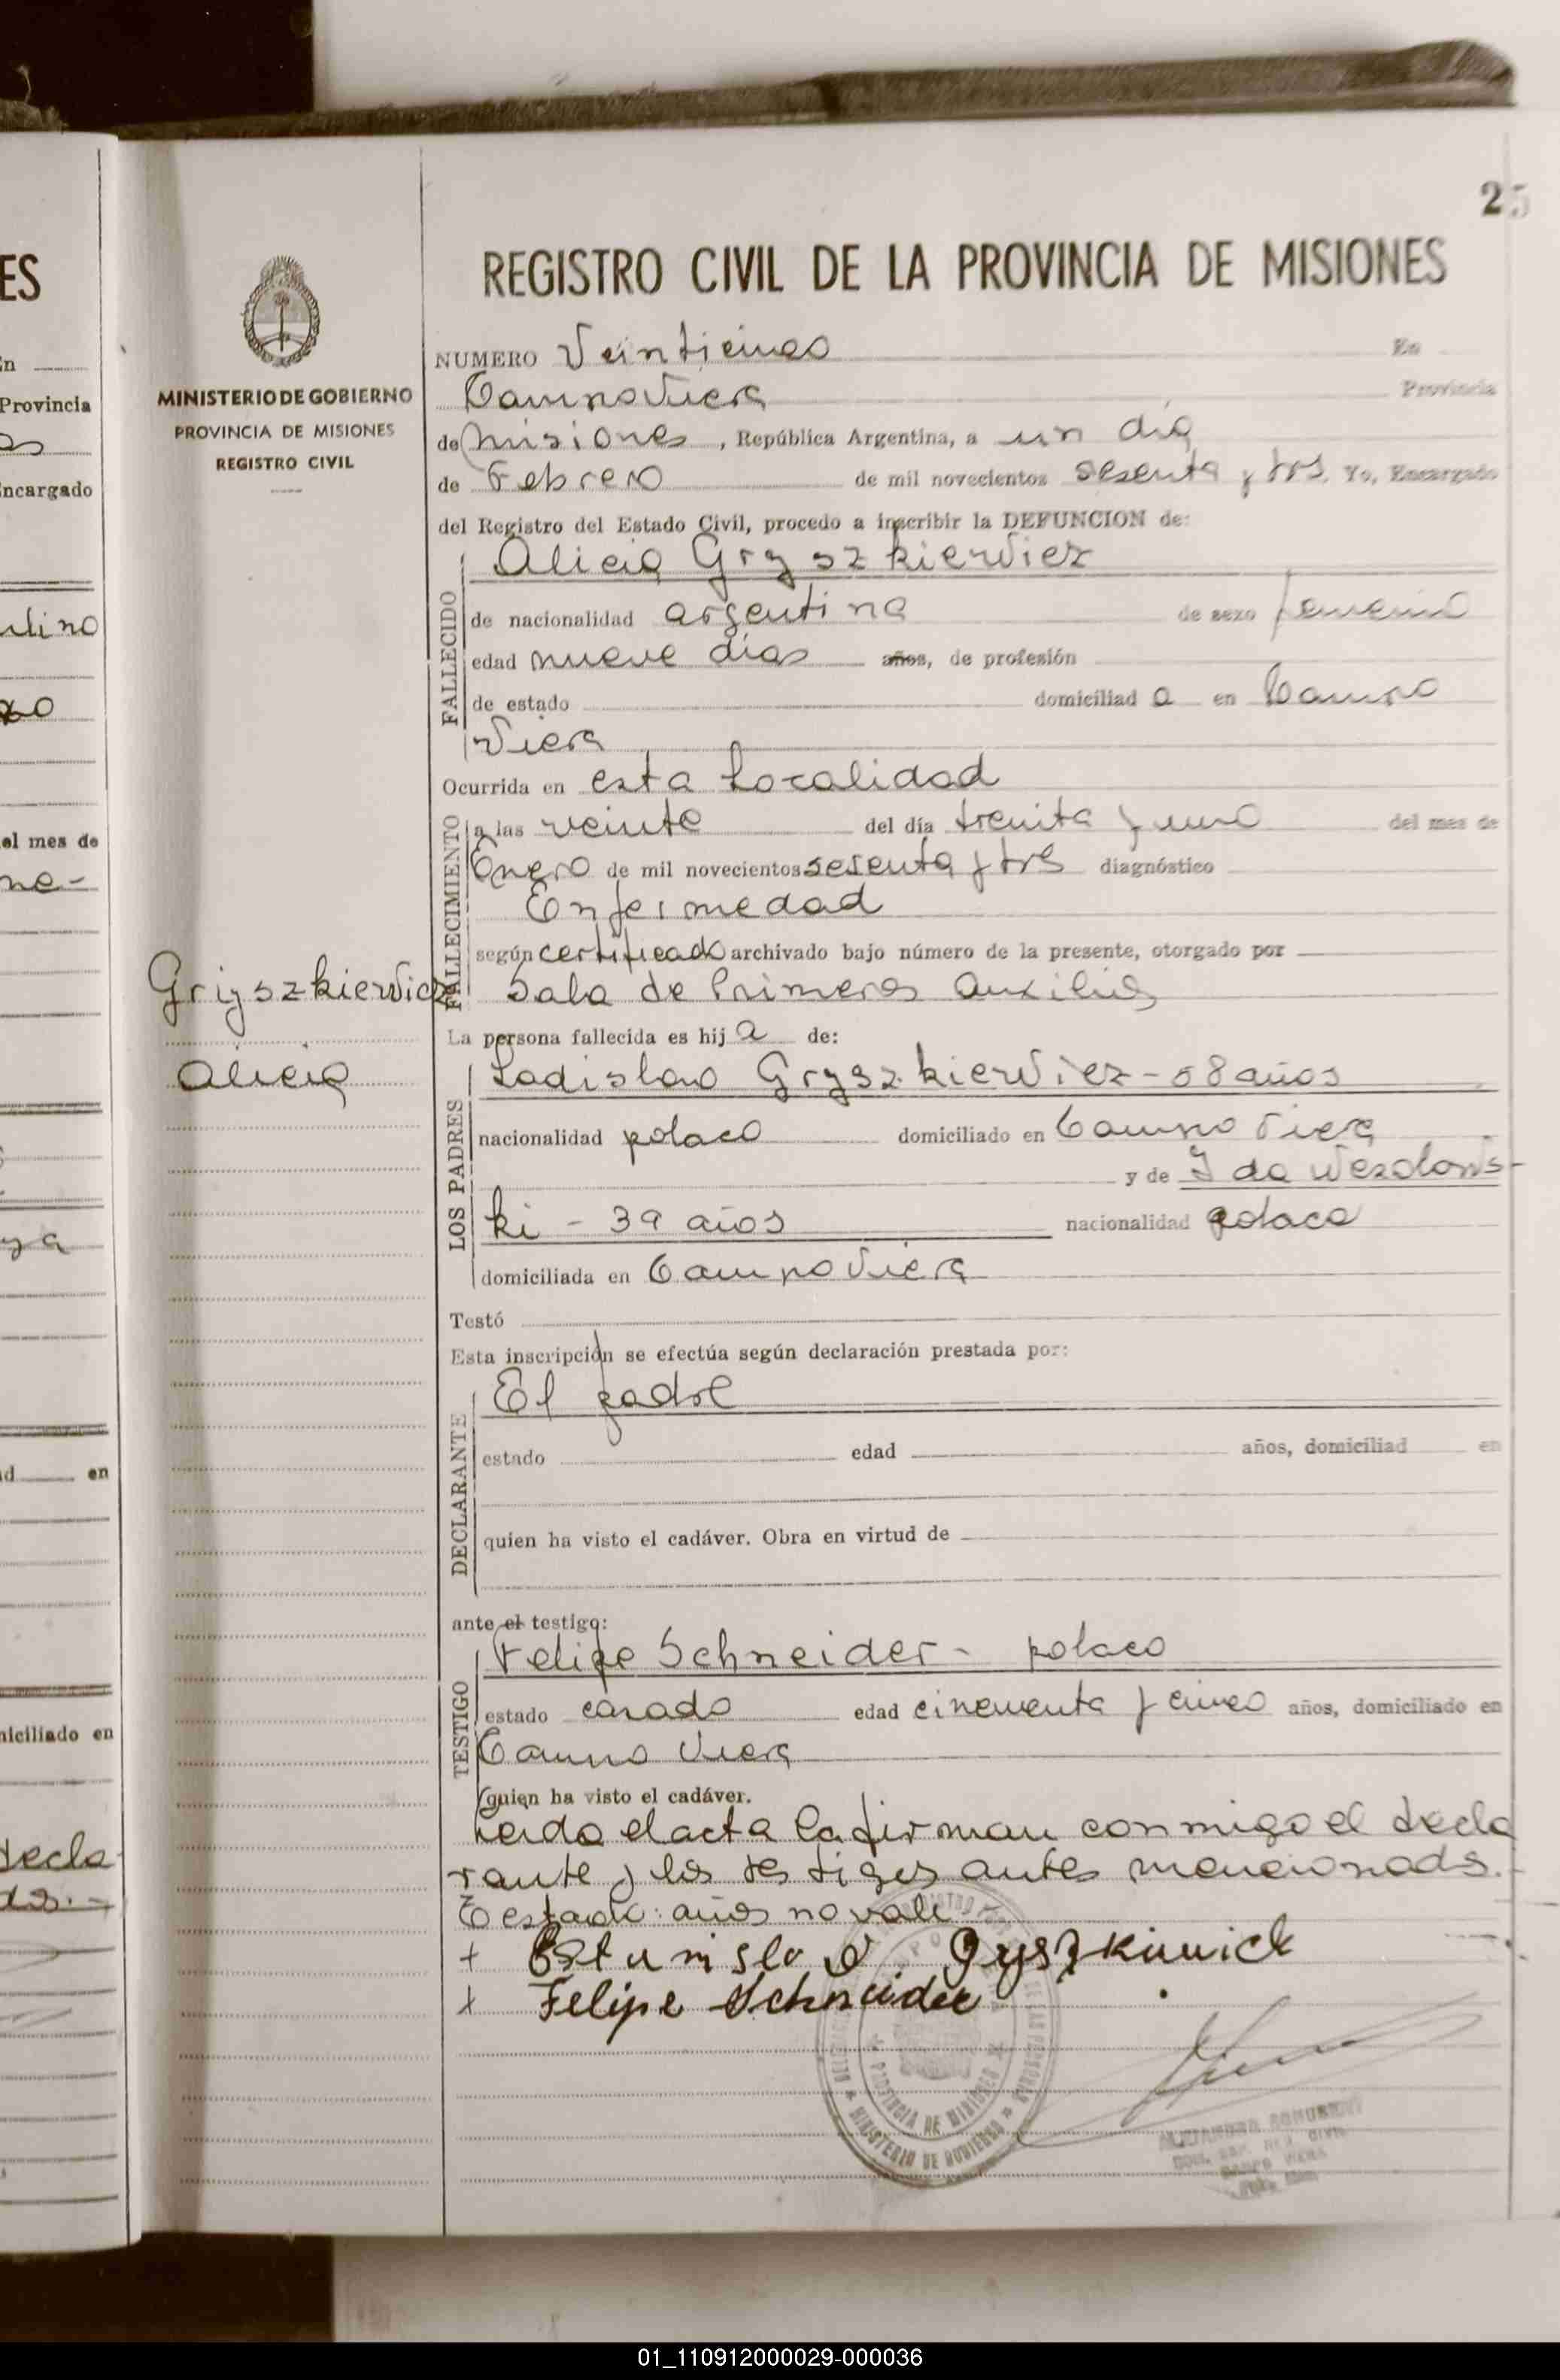 25
REGISTRO CIVIL DE LA PROVINCIA DE MISIONES
MINISTERIO DE GOBIERNO
PROVINCIA DE MISIONES
REGISTRO CIVIL
NUMERO Veinticinco En
Campo Viera Provincia
de Misiones, República Argentina, a un día
de Febrero de mil novecientos sesenta y tres. Yo, Encargado
del Registro del Estado Civil, procedo a inscribir la DEFUNCION de:
FALLECIDO
Alicia Gryszkiewicz
de nacionalidad argentina de sexo femenino
edad nueve días años, de profesión
de estado domiciliad a en Campo
Viera
Ocurrida en esta Localidad
FALLECIMIENTO
a las veinte del día treinta y uno del mes de
Enero de mil novecientos sesenta y tres diagnóstico
Enfermedad
según certificado archivado bajo número de la presente, otorgado por
Sala de Primeros Auxilios
Gryszkiewicz
Alicia
La persona fallecida es hij a de:
LOS PADRES
Ladislao Gryszkiewicz - 58 años
nacionalidad polaco domiciliado en Campo Viera
y de Ida Wesolows-
ki - 39 años nacionalidad polaca
domiciliada en Campo Viera
Testó
Esta inscripción se efectúa según declaración prestada por:
DECLARANTE
El padre
estado edad años, domiciliad en
quien ha visto el cadáver. Obra en virtud de
ante el testigo:
TESTIGO
Felipe Schneider - polaco
estado casado edad cincuenta y cinco años, domiciliado en
Campo Viera
quien ha visto el cadáver.
Leida el acta la firman conmigo el decla
rante y los testigos antes mencionads.-
Testado: años no vale
+ Gyszkiwick
+ Felipe Schneider
MINISTERIO DE GOBIERNO
PROVINCIA DE MISIONES
01_110912000029-000036
ES
En
Provincia
Encargado
el mes de
ne-
ya
en
decla